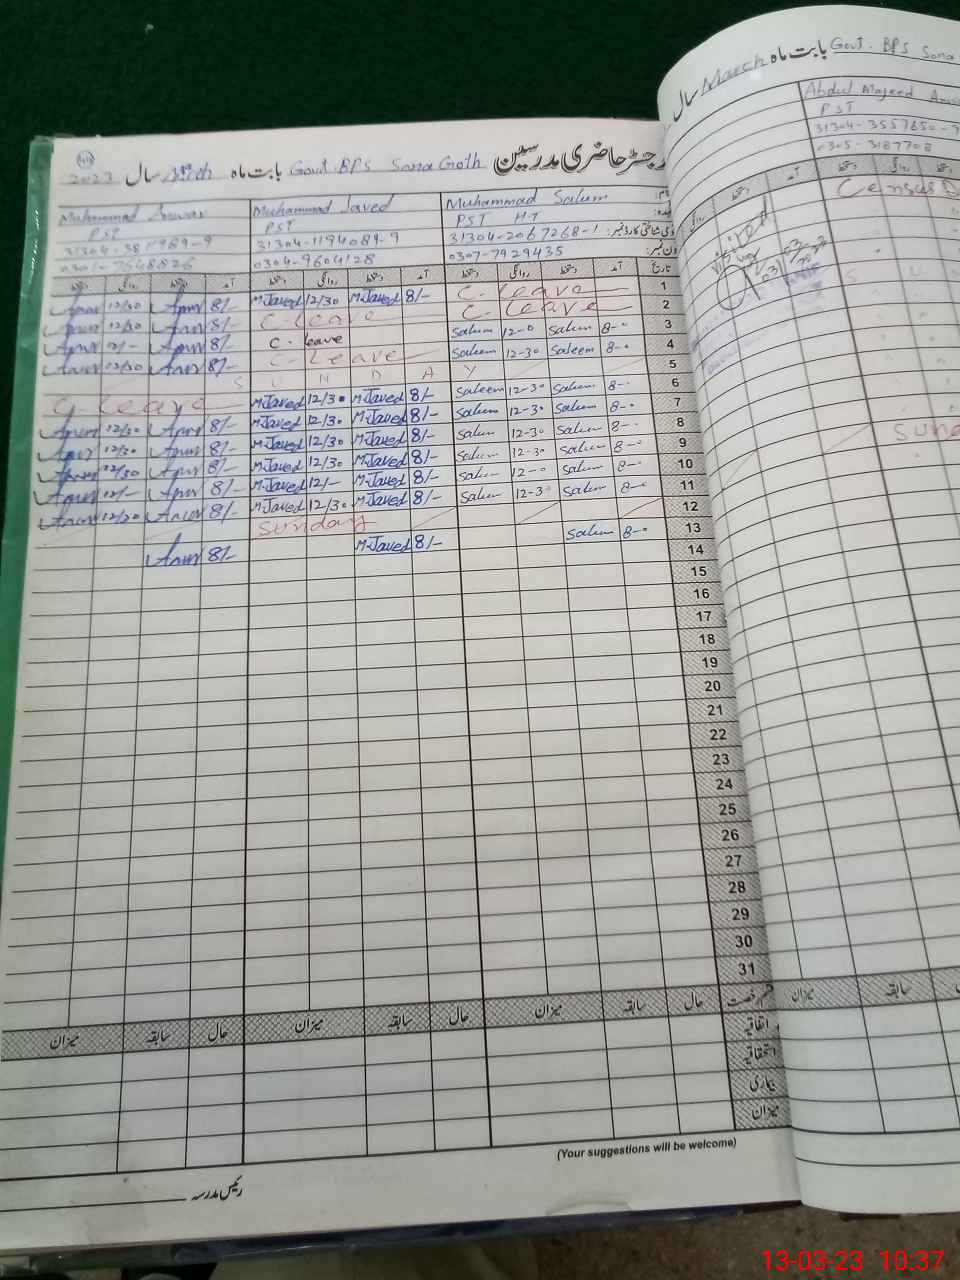 رجسٹر حاضری مدرسین Govt. BPS Sona Goth بابت ماہ March سال 2023
Muhammad Saleem
PST HT
31304-2067268-1
0307-7929435
Muhammad Javed
PST
31304-1194089-9
0304-9604128
Muhammad Anwar
PST
0301-7648826
تاریخ آمد دستخط روانگی دستخط آمد دستخط روانگی دستخط آمد دستخط روانگی دستخط
1 C. leave M.Javed 12/30 M.Javed 8/- Anwr 12/30 Anwr 8/-
2 C. leave C leave Anwr 12/30 Anwr 8/-
3 Saleem 12-0 Saleem 8-0 C. leave Anwr 12/- Anwr 8/-
4 Saleem 12-30 Saleem 8-0 C leave Anwr 12/30 Anwr 8/-
5 S U N D A Y
6 Saleem 12-30 Saleem 8-0 M.Javed 12/30 M.Javed 8/- C. leave
7 Saleem 12-30 Saleem 8-0 M.Javed 12/30 M.Javed 8/- Anwr 12/30 Anwr 8/-
8 Saleem 12-30 Saleem 8-0 M.Javed 12/30 M.Javed 8/- Anwr 12/30 Anwr 8/-
9 Saleem 12-30 Saleem 8-0 M.Javed 12/30 M.Javed 8/- Anwr 12/30 Anwr 8/-
10 Saleem 12-0 Saleem 8-0 M.Javed 12/- M.Javed 8/- Anwr 12/- Anwr 8/-
11 Saleem 12-30 Saleem 8-0 M.Javed 12/30 M.Javed 8/- Anwr 12/30 Anwr 8/-
12 Sunday
13 Saleem 8-0 M.Javed 8/- Anwr 8/-
14
15
16
17
18
19
20
21
22
23
24
25
26
27
28
29
30
31
قسم رخصت حال سابقہ میزان حال سابقہ میزان حال سابقہ میزان
اتفاقیہ
استحقاقیہ
بیماری
میزان
(Your suggestions will be welcome)
رئیس مدرسہ
Govt. BPS Sona بابت ماہ March سال
Abdul Majeed
PST
0305-3187708
آمد دستخط روانگی دستخط
Census
visited
S U
Sund
سابقہ میزان
13-03-23 10:37